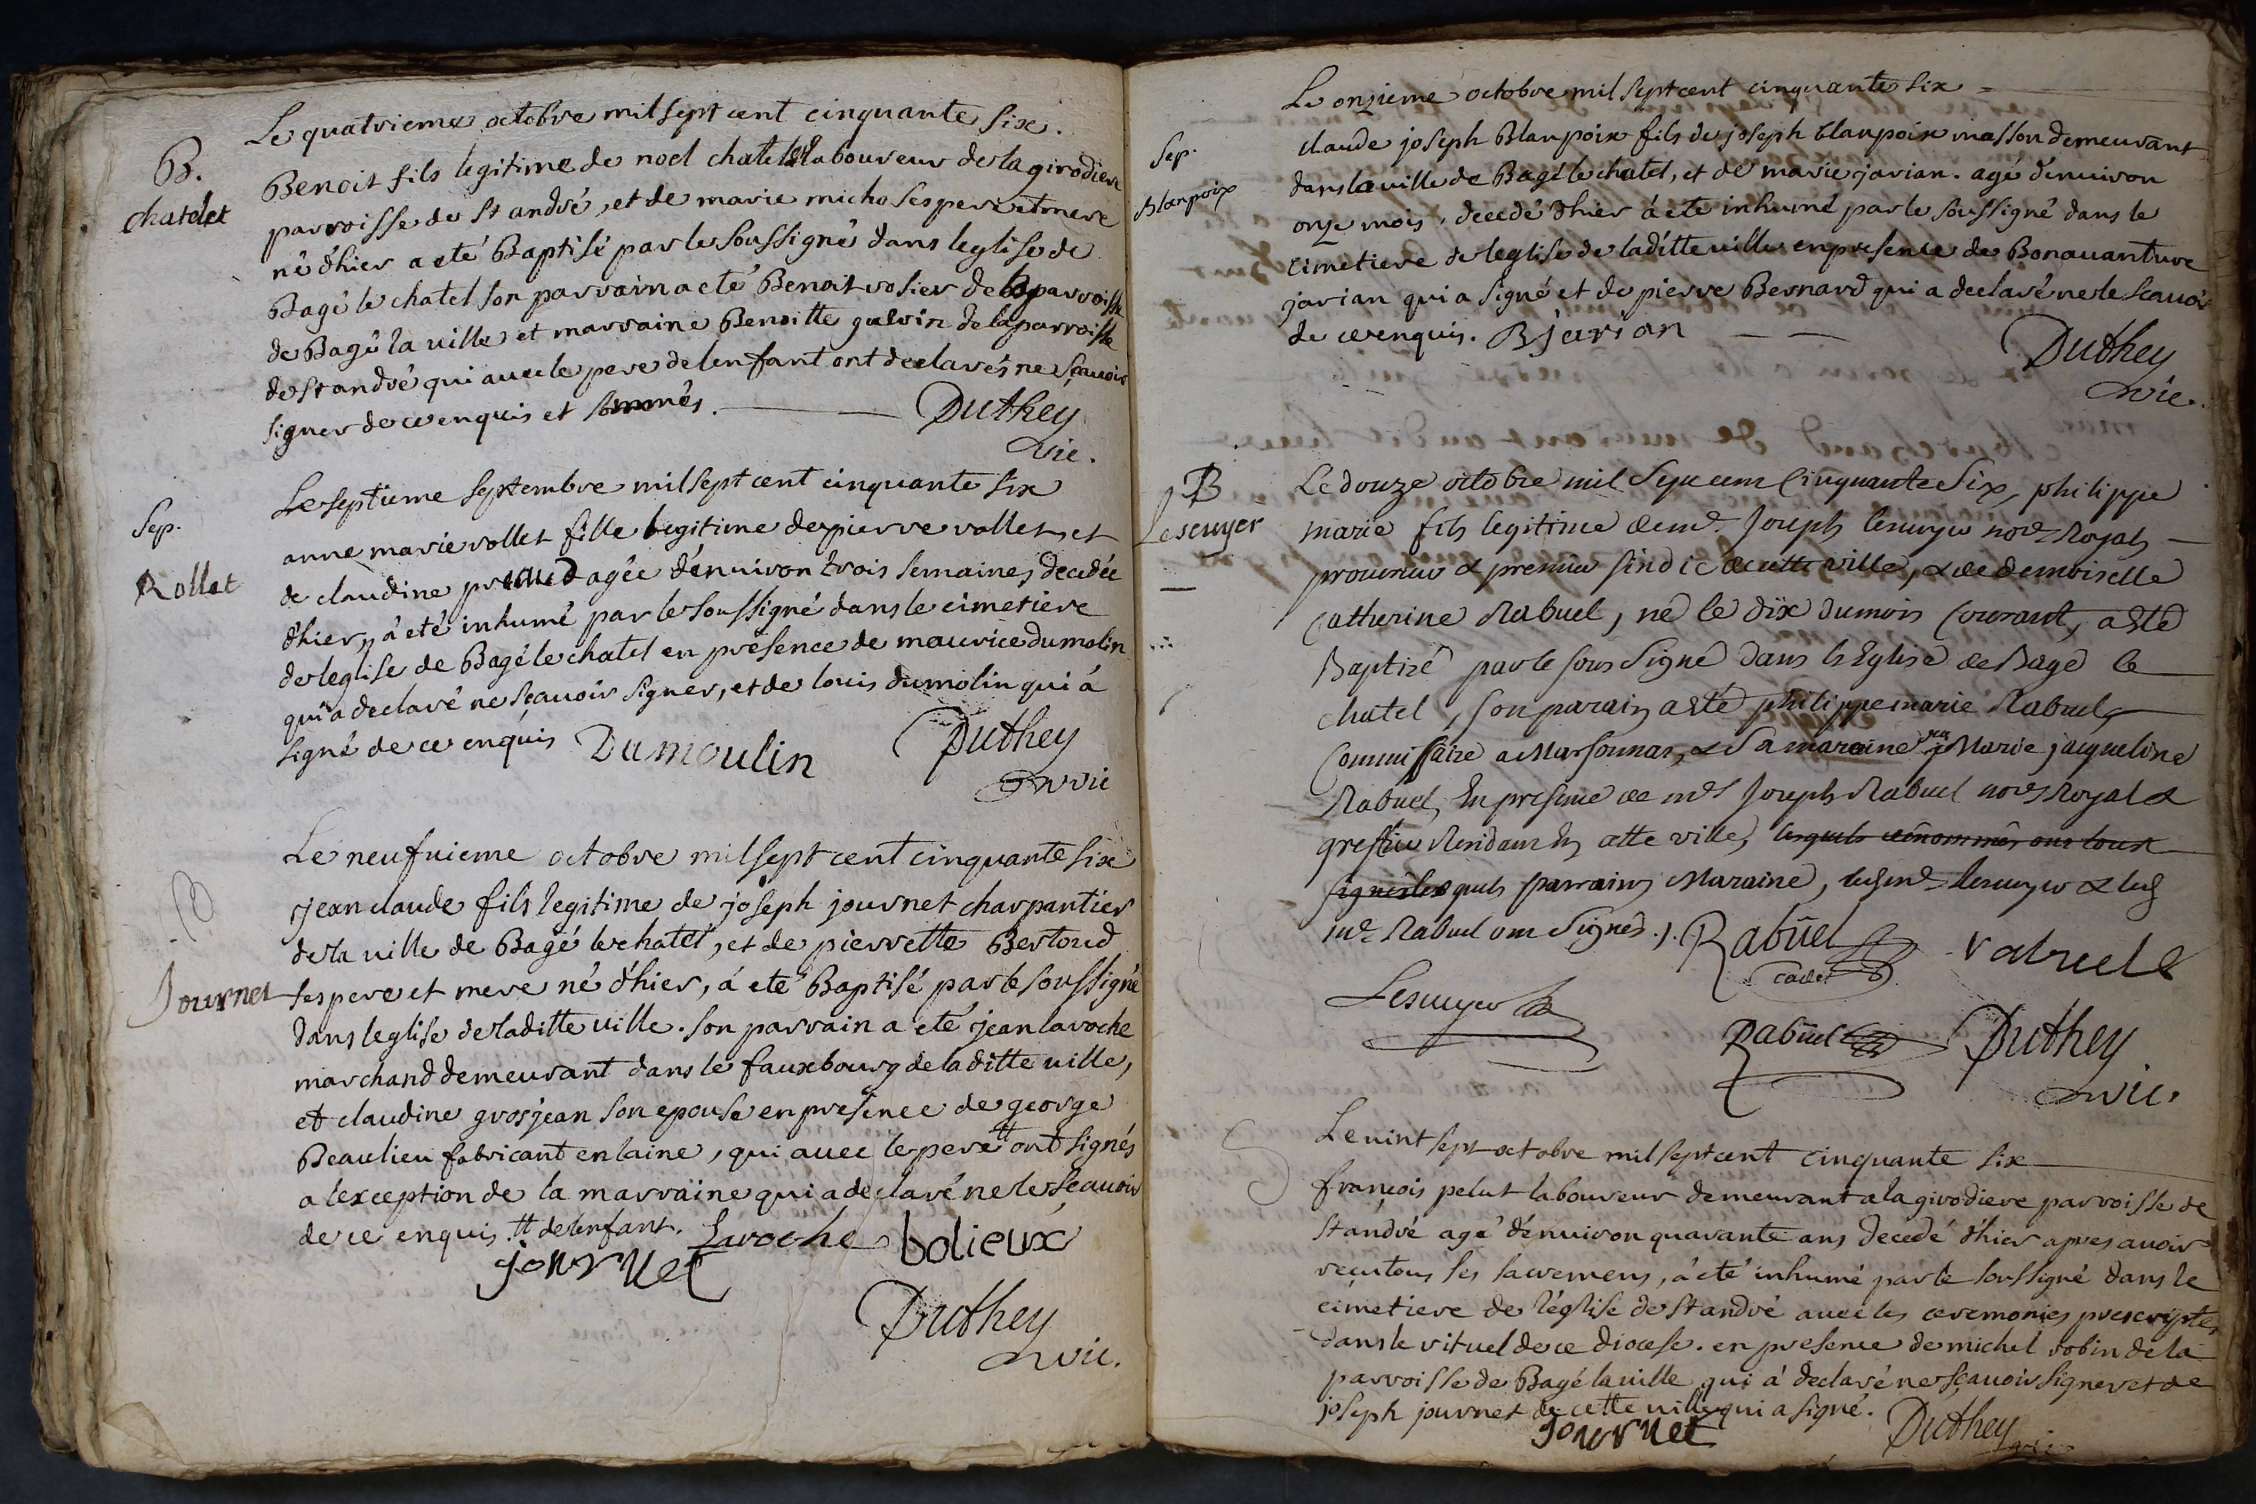 Le quatrieme octobre mil sept cent cinquante six.
B.
chatelet
Benoit fils legitime de noel chatelet laboureur de la girodiere
parroisse de St andré, et de marie micho ses pere et mere
né d'hier a eté Baptisé par le soussigné dans leglise de
Bagé le chatel son parrain a eté Benoit rosier de la parroisse
de Bagé la ville et marraine Benoitte galvin de la parroisse
de St andré qui avec le pere de lenfant ont declarés ne sçavoir
signer de ce enquis et sommés.
Duthey
vic.
Le septieme septembre mil sept cent cinquante six
Sep.
Rollet
anne marie rollet fille legitime de pierre rollet et
de claudine agée d'environ trois semaines decedée
d'hier, á eté inhumé par le soussigné dans le cimetiere
de leglise de Bagé le chatel en présence de maurice dumolin
qui a declaré ne sçavoir signer, et de louis dumolin qui á
signé de ce enquis Dumoulin
Duthey
vic
Le neufvieme octobre mil sept cent cinquante six
B
Journet
Jean claude fils legitime de joseph journet charpantier
de la ville de Bagé le chatel, et de pierrette Bertoud
ses pere et mere né d'hier, á eté Baptisé par le soussigné
dans leglise de laditte ville. son parrain a eté jean laroche
marchand demeurant dans le fauxbourg de laditte ville,
et claudine grosjean son epouse en presence de george
Beaulieu fabricant en laine, qui avec le pere tt ont signés
a lexception de la marraine qui a declaré ne le sçavoir
de ce enquis. tt de lenfant. Laroche bolieux
journet
Duthey
vic.
Le onzieme octobre mil sept cent cinquante six
Sep.
Blanpoix
claude joseph Blanpoix fils de joseph blanpoix masson demeurant
dans la ville de Bagé le chatel, et de marie jarian. agé d'environ
onze mois, decedé d'hier á eté inhumé par le soussigné dans le
cimetiere de leglise de laditte ville en presence de Bonavanture
jarian qui a signé et de pierre Bernard qui a declaré ne le sçavoir
de ce enquis. B jarian
Duthey
vic.
B
Lescuyer
Le douze octobre mil Sept cent Cinquante Six, philippe
marie fils legitime de me. Joseph lescuyer nore. Royal
procureur & premier sindic de cette ville, & de demoiselle
Catherine Rabuel, né le dix du mois Courant, a esté
Baptisé par le sous Signé dans l'Eglise de Bagé le
chatel, son parain a esté philippe marie Rabuel
Commissaire a Marsonnas, & Sa maraine Marie jacqueline
Rabuel, En presence de me Joseph Rabuel nore Royal &
greffier Residant En cette ville, lesquels cénommés ont tous
signés lesquels parrain, Maraine, led me. lescuyer & led
me. Rabuel ont Signés.
Rabüel
cadet
rabuel
Lescuyer
Rabüel
Duthey
vic.
Le vint sept octobre mil sept cent cinquante six
S
francois pelut laboureur demeurant a la girodiere parroisse de
St andré agé d'environ quarante ans decedé d'hier apres avoir
reçu tous les sacremens, á eté inhumé par le soussigné dans le
cimetiere de l'église de St andré avec les ceremonies prescriptes
dans le rituel de ce diocese. en presence de michel robin de la
parroisse de Bagé la ville qui á declaré ne sçavoir signer et de
joseph journet de cette ville qui a signé.
journet
Duthey
vic